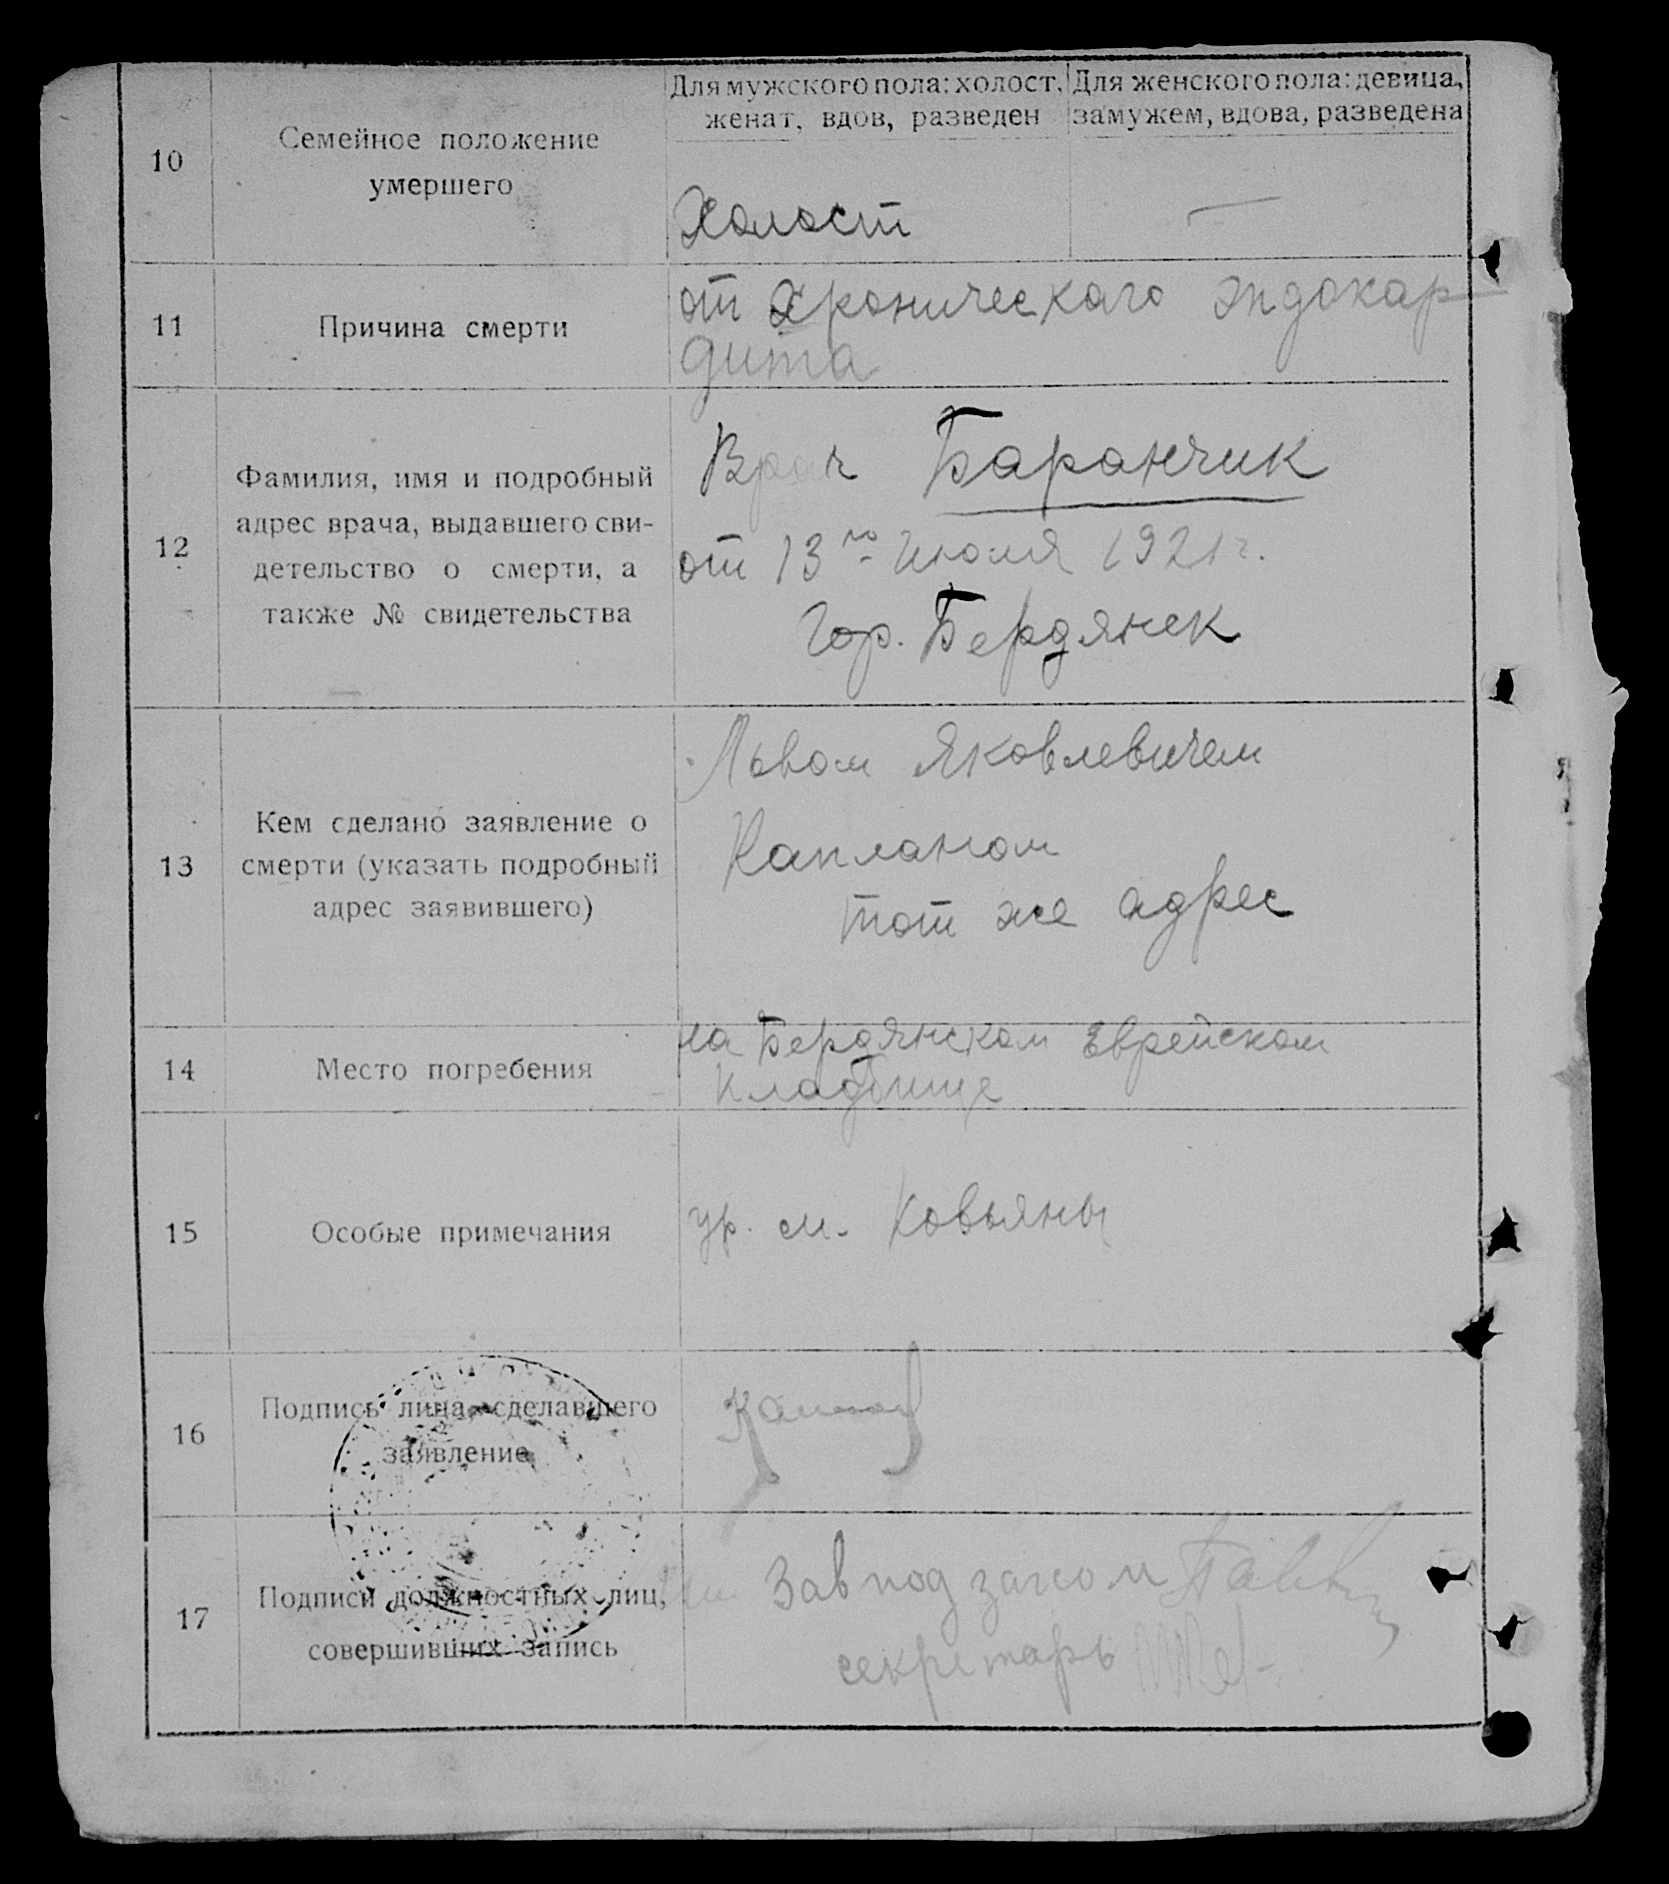 Для мужского пола: холост, женат, вдов, разведен
Для женского пола: девица, замужем, вдова, разведена
10
Семейное положение
умершего
Холост
—
11
Причина смерти
от хронического эндокар
дита
12
Фамилия, имя и подробный
адрес врача, выдавшего сви-
детельство о смерти, а
также № свидетельства
Врач Баранчик
от 13го Июля 1921 г.
Гор. Бердянск
13
Кем сделано заявление о
смерти (указать подробный
адрес заявившего)
Львом Яковлевичем
Капланом
тот же адрес
14
Место погребения
на Бердянском Еврейском
кладбище
15
Особые примечания
ур. м. Ковьяны
16
Подпись лица, сделавшего
заявление
17
Подписи должностных лиц,
совершивших запись
Завподзагсом
секретарь